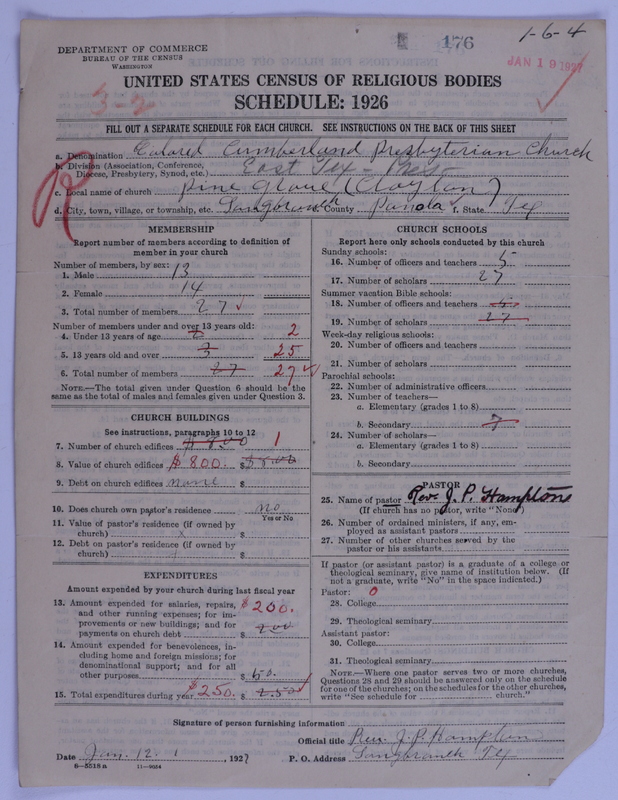 1-6-4
176
JAN 19 1927
DEPARTMENT OF COMMERCE
BUREAU OF THE CENSUS
WASHINGTON
3-2
UNITED STATES CENSUS OF RELIGIOUS BODIES
SCHEDULE: 1926
FILL OUT A SEPARATE SCHEDULE FOR EACH CHURCH. SEE INSTRUCTIONS ON THE BACK OF THIS SHEET
a. Denomination Colored Cumberland Presbyterian Church
b. Division (Association, Conference, Diocese, Presbytery, Synod, etc.) East Tex - Pres
c. Local name of church Pine Grove (Clayton)
d. City, town, village, or township, etc. Langbranch e. County Panola f. State Tex
MEMBERSHIP
Report number of members according to definition of member in your church
Number of members, by sex:
1. Male 13
2. Female 14
3. Total number of members 27
Number of members under and over 13 years old:
4. Under 13 years of age 2 2
5. 13 years old and over 3 25
6. Total number of members 27 27
NOTE.—The total given under Question 6 should be the same as the total of males and females given under Question 3.
CHURCH BUILDINGS
See instructions, paragraphs 10 to 12
7. Number of church edifices $800 1
8. Value of church edifices $800. $
9. Debt on church edifices none $
10. Does church own pastor's residence no
Yes or No
11. Value of pastor's residence (if owned by church) x $
12. Debt on pastor's residence (if owned by church) $
EXPENDITURES
Amount expended by your church during last fiscal year
13. Amount expended for salaries, repairs, and other running expenses; for improvements or new buildings; and for payments on church debt $200. $ 200
14. Amount expended for benevolences, including home and foreign missions; for denominational support; and for all other purposes $ 50.
15. Total expenditures during year $250. $ 250
CHURCH SCHOOLS
Report here only schools conducted by this church
Sunday schools:
16. Number of officers and teachers 5
17. Number of scholars 27
Summer vacation Bible schools:
18. Number of officers and teachers 5
19. Number of scholars 27
Week-day religious schools:
20. Number of officers and teachers
21. Number of scholars
Parochial schools:
22. Number of administrative officers
23. Number of teachers—
a. Elementary (grades 1 to 8)
b. Secondary 7
24. Number of scholars—
a. Elementary (grades 1 to 8)
b. Secondary
PASTOR
25. Name of pastor Rev. J. P. Hampton
(If church has no pastor, write "None")
26. Number of ordained ministers, if any, employed as assistant pastors
27. Number of other churches served by the pastor or his assistants
If pastor (or assistant pastor) is a graduate of a college or theological seminary, give name of institution below. (If not a graduate, write "No" in the space indicated.)
Pastor: 0
28. College
29. Theological seminary
Assistant pastor:
30. College
31. Theological seminary
NOTE.—Where one pastor serves two or more churches, Questions 28 and 29 should be answered only on the schedule for one of the churches; on the schedules for the other churches, write "See schedule for church."
Signature of person furnishing information
Official title Rev. J. P. Hampton
Date Jan. 12. 1, 1927 P. O. Address Langbranch Tex
8—5518 a 11—9664